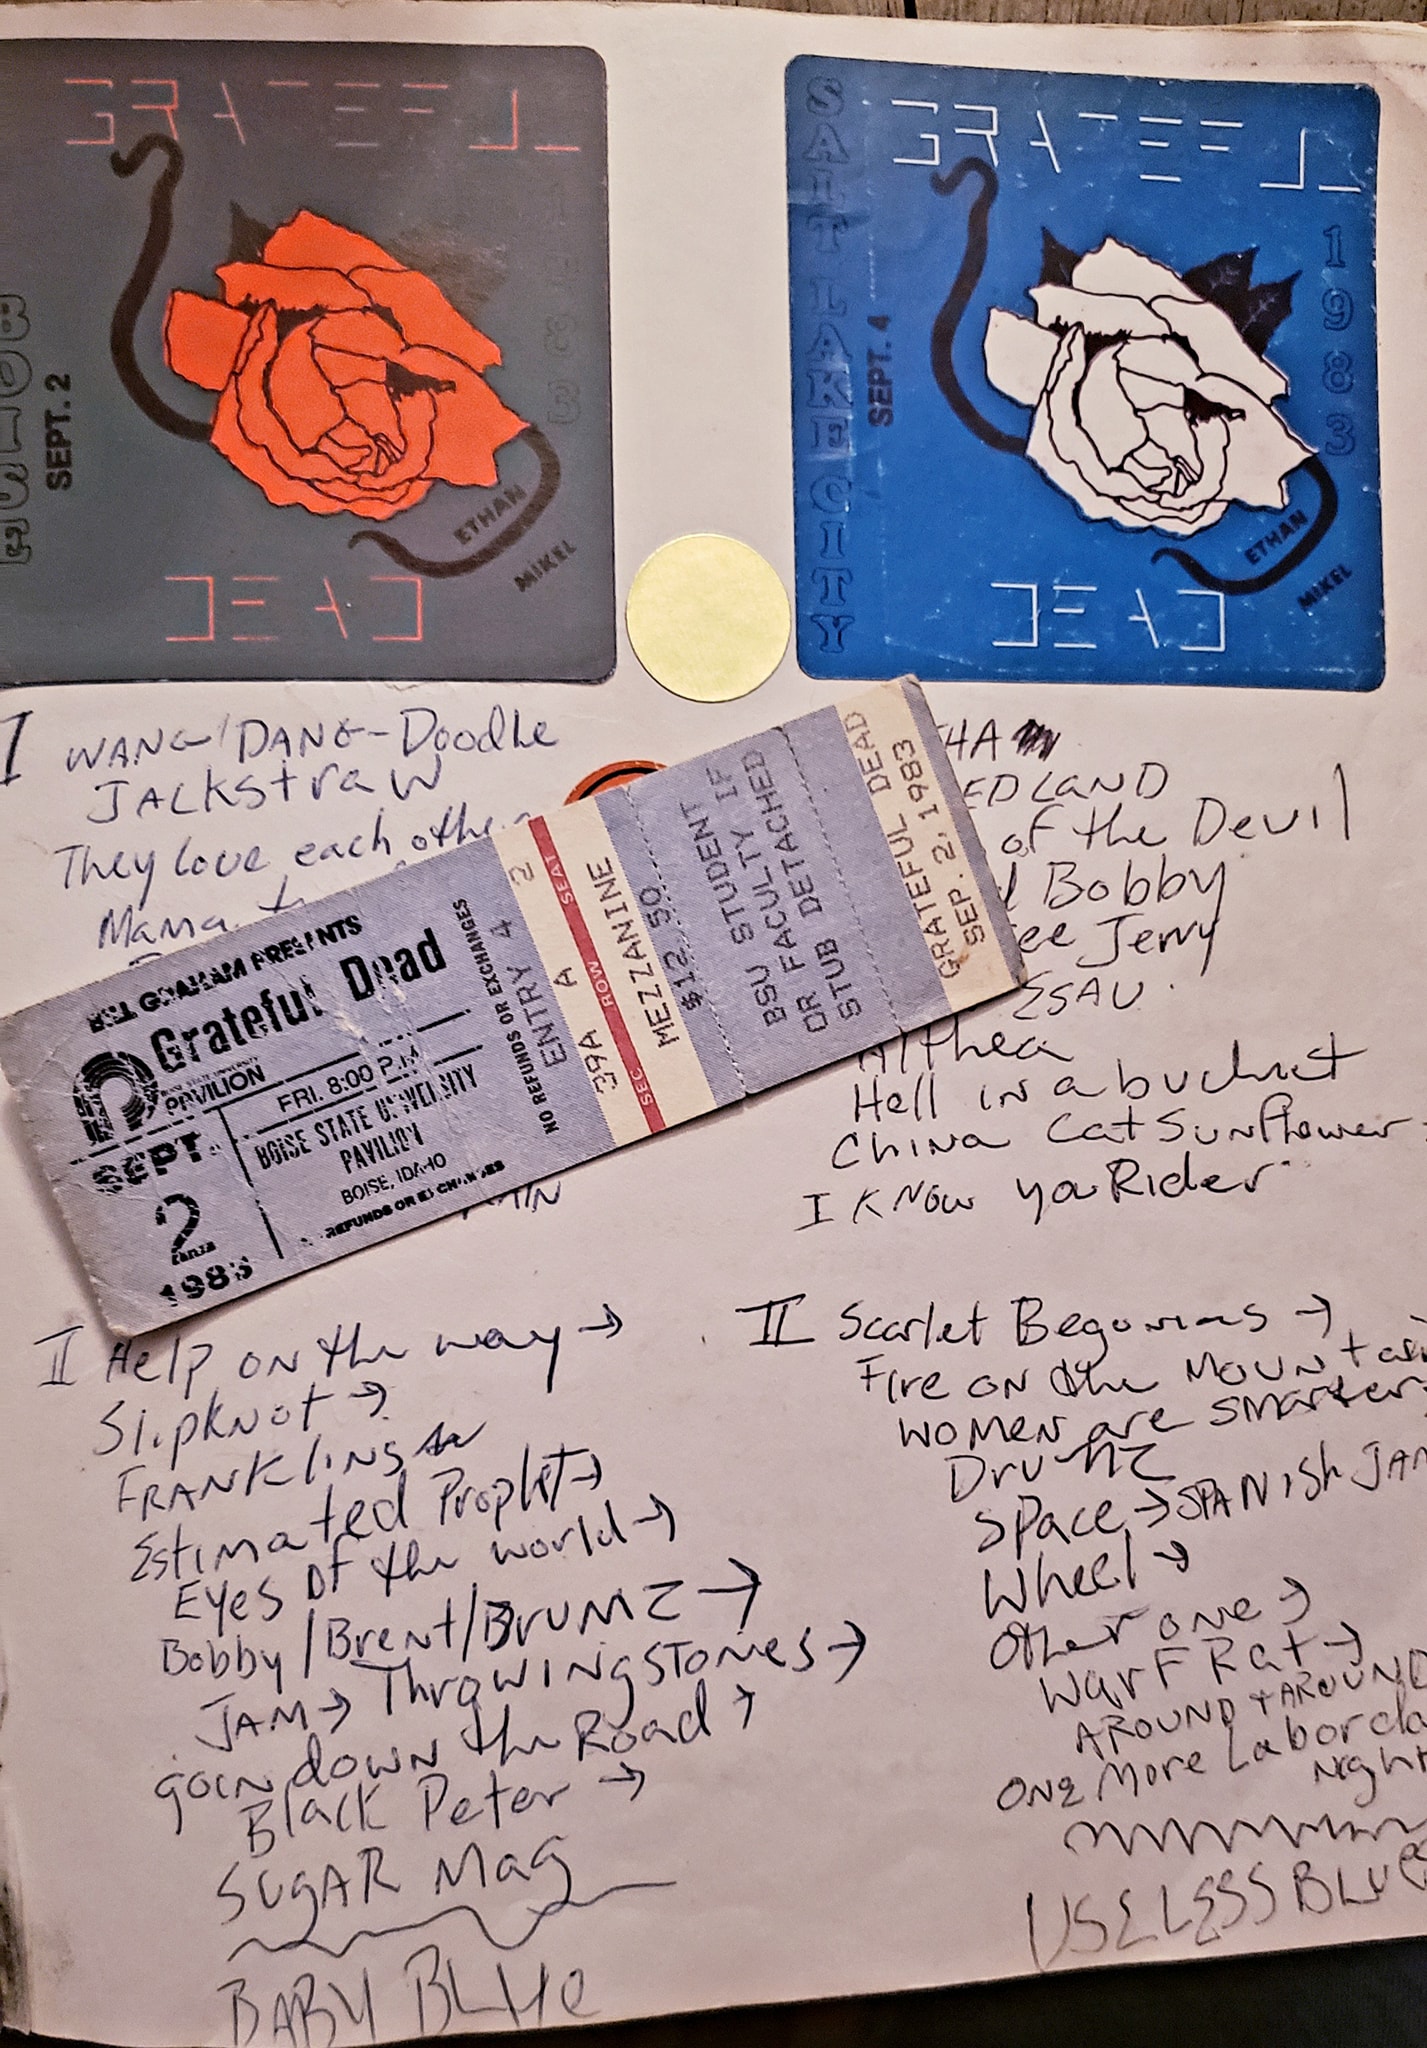 GRATEFUL
BOISE
SEPT. 2
1983
ETHAN
MIKEL
DEAD
GRATEFUL
SALT LAKE CITY
SEPT. 4
1983
ETHAN
MIKEL
DEAD
I WANG/DANG-Doodle
JACKStraw
They love each other
Mama
BILL GRAHAM PRESENTS
Grateful Dead
PAVILION
FRI. 8:00 P.M.
BOISE STATE UNIVERSITY
PAVILION
BOISE, IDAHO
NO REFUNDS OR EXCHANGES
SEPT.
2
1983
NO REFUNDS OR EXCHANGES
ENTRY 4 2
39A A
SEC ROW SEAT
MEZZANINE
$12.50
BSU STUDENT
OR FACULTY IF
STUB DETACHED
GRATEFUL DEAD
SEP. 2, 1983
EDLAND
of the Devil
Bobby
ee Jerry
ESAU
Althea
Hell in a bucket
China Cat Sunflower
I KNOW yoU Rider
II Help on the way →
Slipknot →
FRANKlINS
Estimated Prophet →
Eyes of the world →
Bobby/Brent/DRUMZ →
JAM → Throwing Stones →
goin down the Road →
Black Peter →
SUGAR Mag
BABY BLUe
II Scarlet Begonias →
Fire on the Mountain
WOMEN are SMarter
DruMZ
Space → SPANISh JAM
Wheel →
Other one →
Warf Rat →
AROUND + AROUND
ONE More Labor day
Night
USELESS BLUES